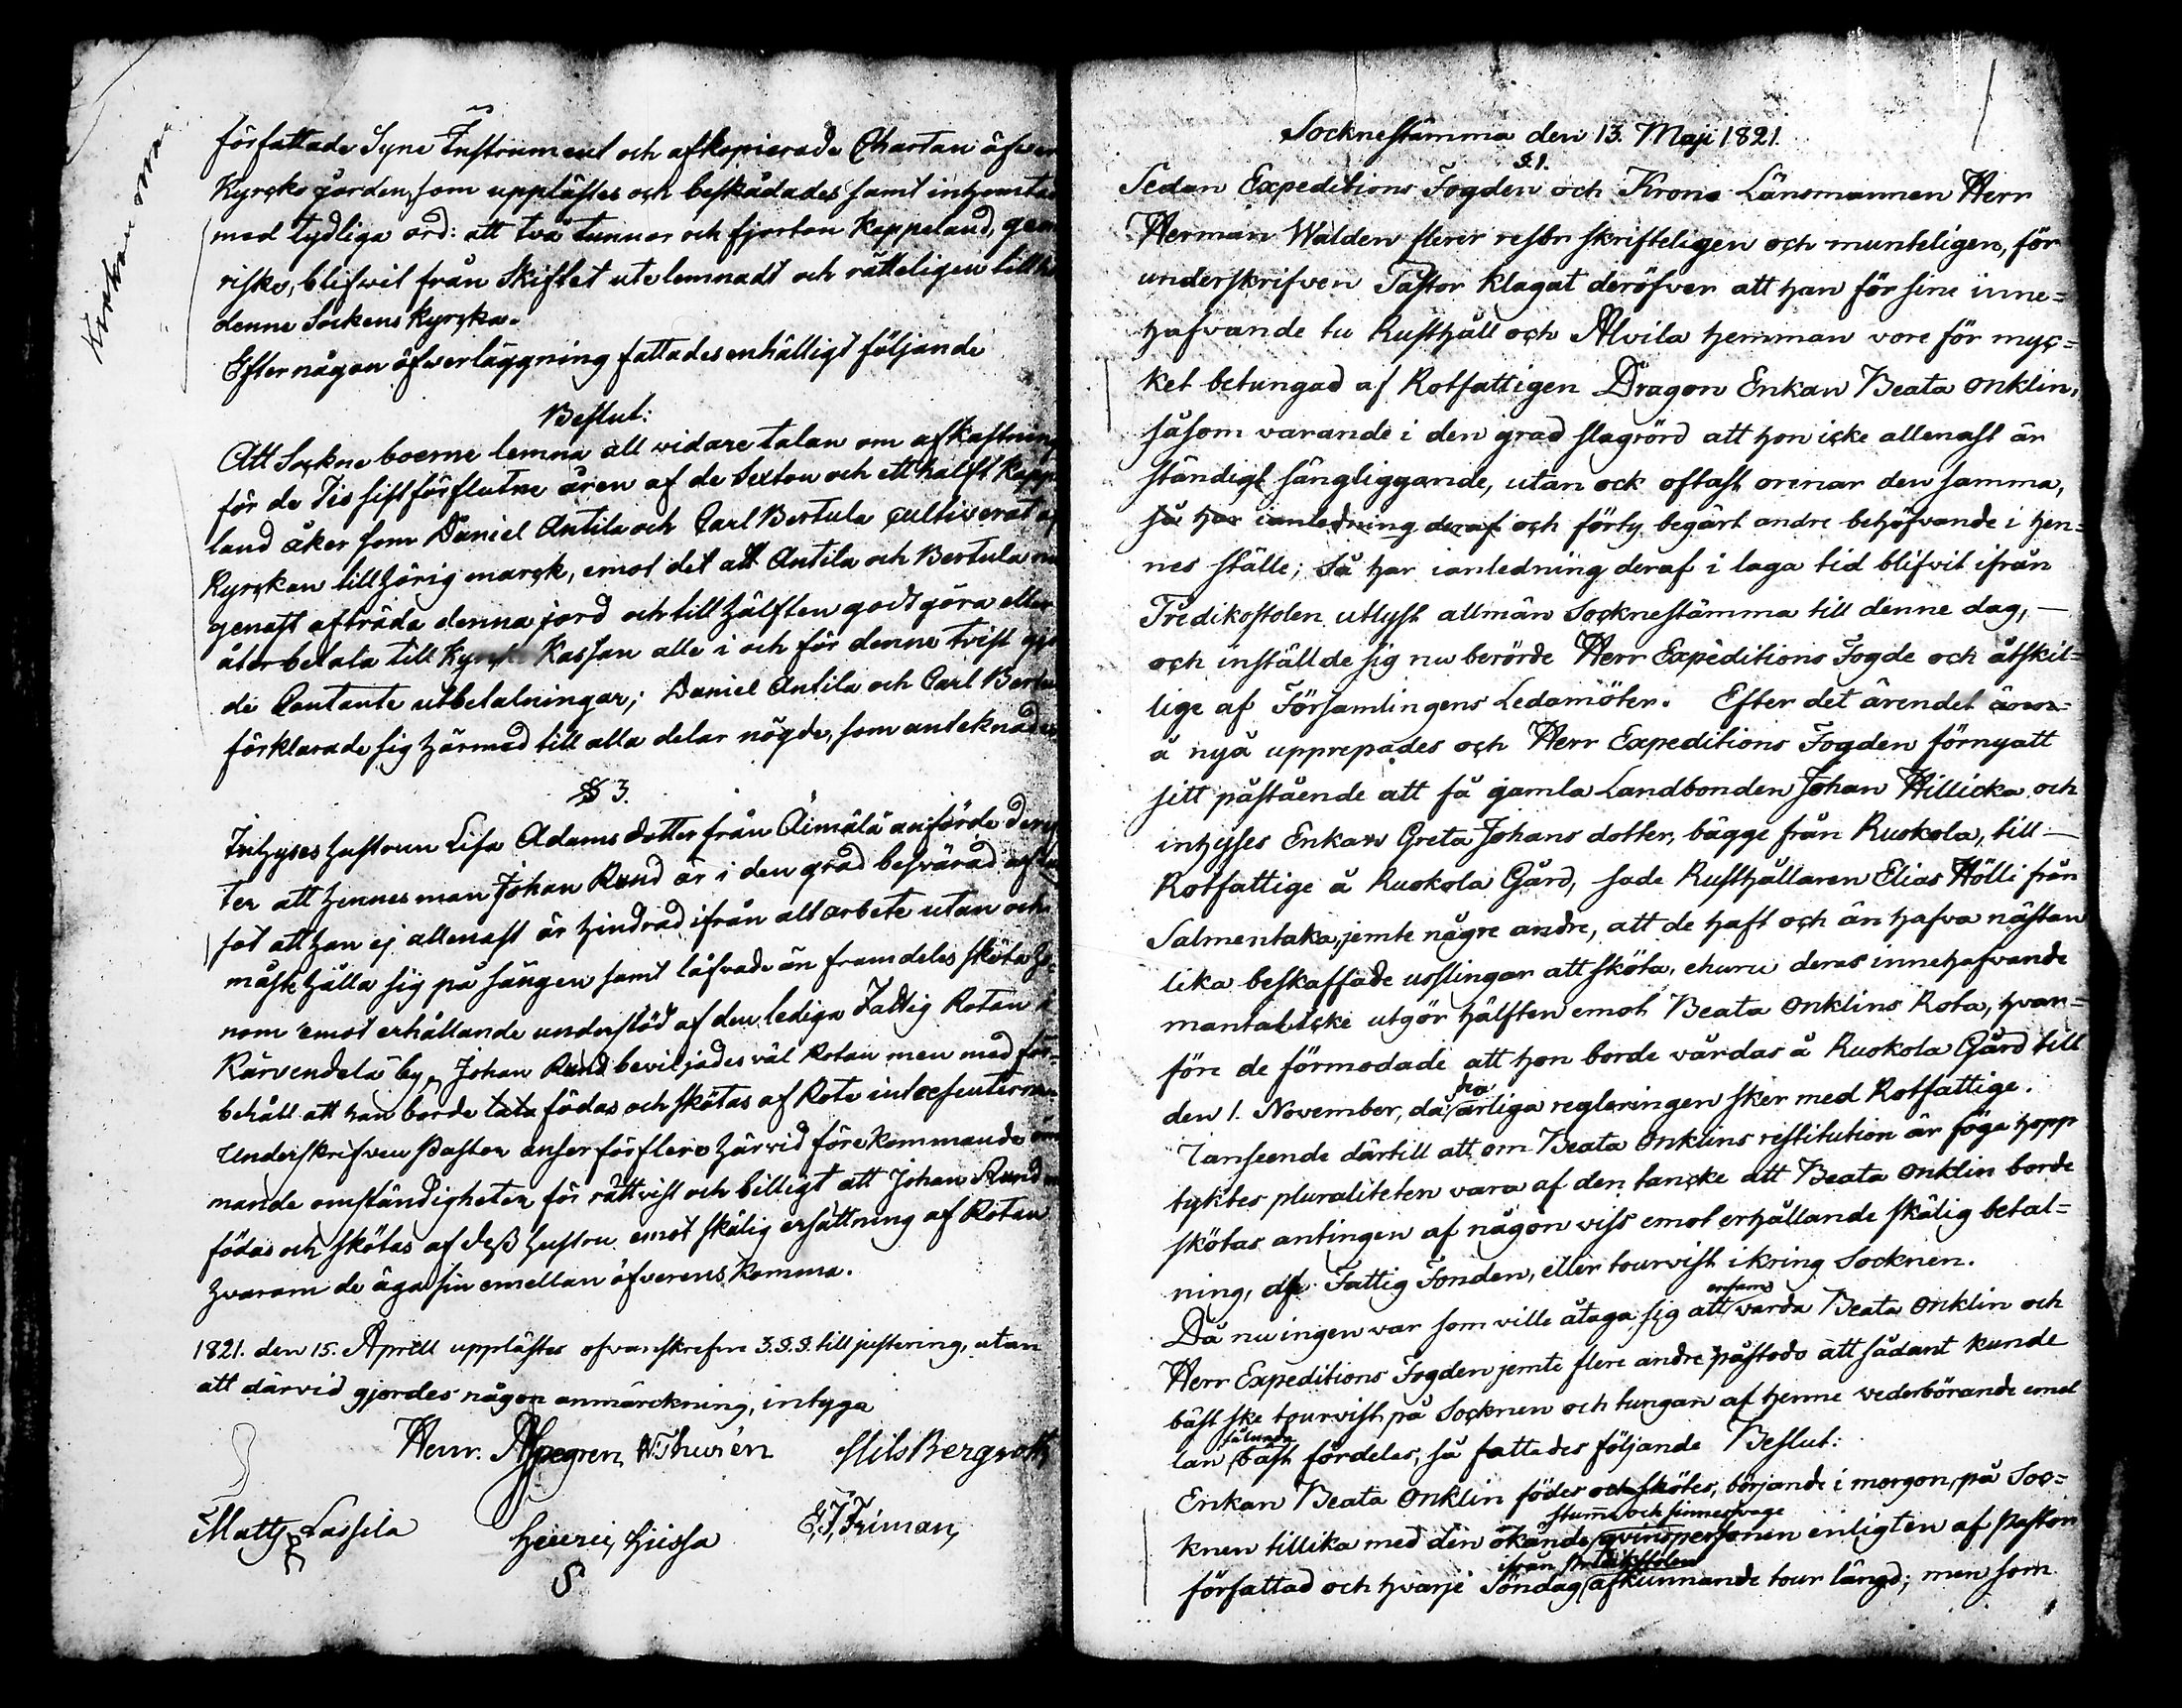 Kirkon maa
författade Syne Instrument och afkopierade Chartan öfwer
Kyrcko gården, som upplästes och beskådades samt
med tydliga ord: att två tunnor och fjorton Kappeland,
riske, blifwit från Skiftet utelemnadt och rätteligen
denne Sockens Kyrcka.
Efter någon öfwerläggning fattades enhälligt följande
Beslut:
Att Sockne boerne lemna all widare talan om afkastning
för de Tio sistförflutne åren af de Sexton och ett halft Kapp
land åker som Daniel Antila och Carl Bertula cultiverat
Kyrckan tillhörig marck, emot det att Antila och Bertula
genast afträda denna jord och till hälften godtgöra eller
återbetala till Kyrcko Kassan alle i och för denne tvist
de Contante utbetalningar; Daniel Antila och Carl
förklarade sig härmed till alla delar nögde, som antecknades
§ 3.
Inhyses hustrun Lisa Adams dotter från Äimälä anförde
ter att hennes man Johan Rund är i den grad besvärad af
sot att han ej allenast är hindrad ifrån allt arbete utan och
måste hålla sig på sängen samt låfvade än framdeles sköta
nom emot erhållande understöd af den lediga Fattig Rotan i
Kärvendelä by, Johan Rund beviljades väl Rotan men med för=
behåll att han borde tata födas och skötas af Rote
Underskrifven Pastor anser för flere härvid förekommande
mande omständigheter, för rättvist och billigt att Johan Rund
födas och skötas af dess hustru emot skälig ersättning af Rotan
hvarom de äga sin emellan öfverens komma.
1821. den 15. Aprill upplästes ofvanskrefne 3.§.§. till justering, utan
att därvid gjordes någon anmärckning, intyga
Henr. Alpegren N. Thurén Nils Bergroth
Matts Lassila Henric Hiessa E. J. Friman,
Socknestämma den 13. Maji 1821.
§.1.
Sedan Expeditions Fogden och Krono Länsmannen Herr
Herman Walden flere resor skrifteligen och munteligen, för
underskrifven Pastor klagat deröfver att han för sine inne=
hafvande tu Rusthåll och Alvila hemman vore för myc=
ket betungad af Rotfattigen Dragon Enkan Beata Onklin,
såsom varande i den grad slagrörd att hon icke allenast är
ständigt sängliggande, utan ock oftast orenar den samma,
så har ianledning deraf och förty begärt andre behöfvande i hen=
nes ställe; Så har ianledning deraf i laga tid blifvit ifrån
Predikostolen utlyst allmän Socknestämma till denne dag, —
och inställde sig nu berörde Herr Expeditions Fogde och åtskil=
lige af Församlingens Ledamöter. Efter det ärendet
å nyå upprepades och Herr Expeditions Fogden förnyatt
sitt påstående att få gamla Landbonden Johan Hillicka och
inhysses Enkan Greta Johans dotter, bägge från Ruokola, till —
Rotfattige å Ruokola Gård, sade Rusthållaren Elias Hölli från
Salmentaka, jemte någre andre, att de haft och än hafva nästan
lika beskaffade usslingar att sköta, ehuru deras innehafvande
mantal icke utgör hälften emot Beata Onklins Rota, hvar=
före de förmodade att hon borde vårdas å Ruokola Gård till
den 1. November, då den årliga regleringen sker med Rotfattige.
I anseende därtill att om Beata Onklins restitution är föga hopp
tyktes pluraliteten vara af den tancke att Beata Onklin borde
skötas antingen af någon viss emot erhållande skälig betal=
ning, af Fattig Fonden, eller tourvist ikring Socknen.
Då nu ingen var som ville åtaga sig att ensam vårda Beata Onklin och
Herr Expeditions Fogden jemte flere andre påstodo att sådant kunde
bäst ske tourvist på Socknen och tungan af henne vederbörande emel
lan sålunda bäst fördeles, så fattades följande Beslut:
Enkan Beata Onklin födes och skötes, börjande i morgon, på Soc=
knen tillika med den okände stumme och sinnesvage qvinspersonen enligt en af Pastorn
författad och hvarje Söndag ifrån Predikstolen afkunnande tour längd; men som